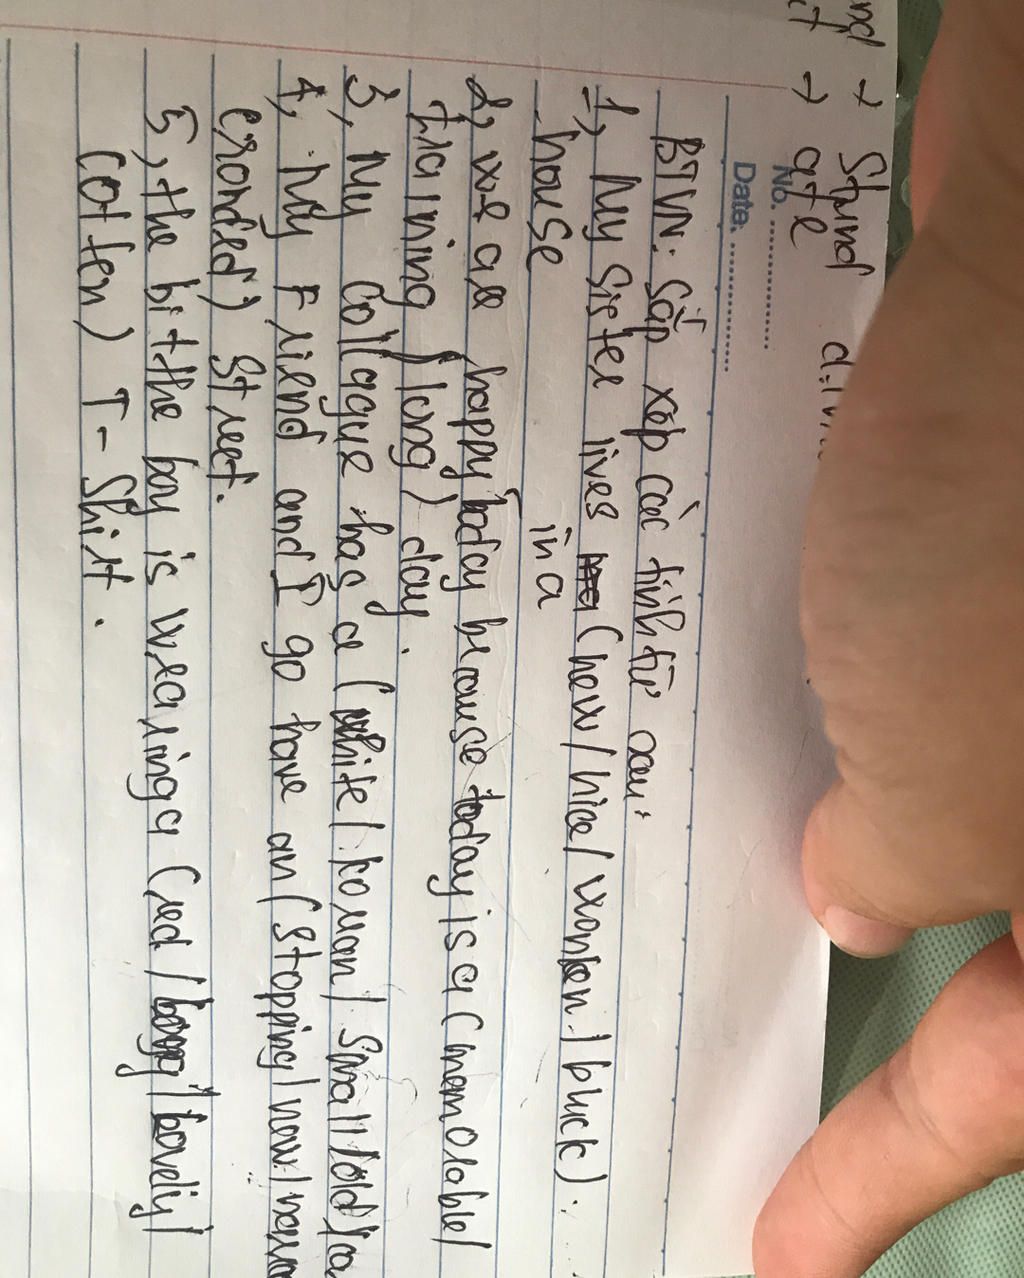 → Stand
→ ate
No.
Date:
BTVN: Sắp xếp các tính từ sau:
1, My sister lives in a (new / nice / wonden / bluck).
house
2, we are happy today because today is a (memorable /
training / long) day.
3, My collague has a (white / kouan / small / old /
4, My Friend and I go have an (stopping / now /
cronded) street.
5, the bit the boy is wearing a (red / / lovely /
cotten) T-Shirt.